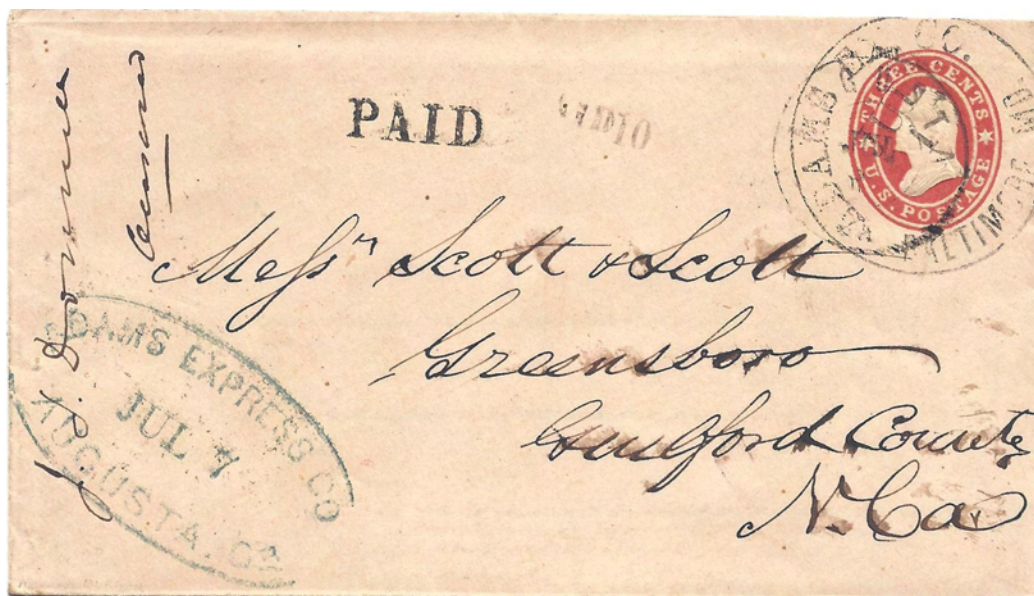 PAID
PAID 10
ADAMS EX. CO.
BALTIMORE
THREE CENTS
U.S. POSTAGE
Messrs Scott & Scott
Greensboro
Guilford County
N. Ca
ADAMS EXPRESS CO
JUL 7
AUGUSTA. GA